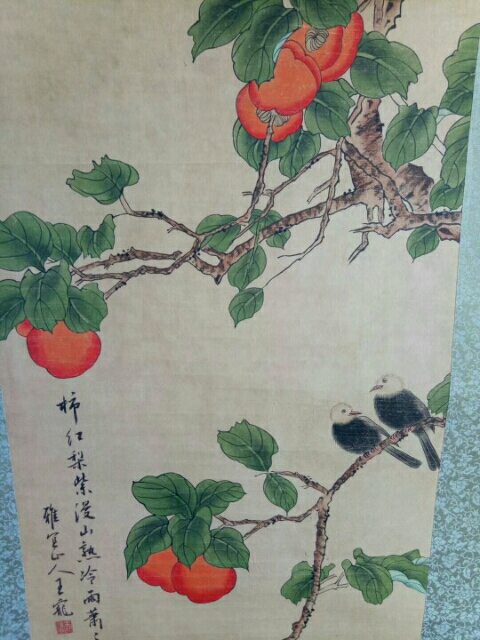 柿红梨紫漫山熟冷雨萧
雅宜山人王寵